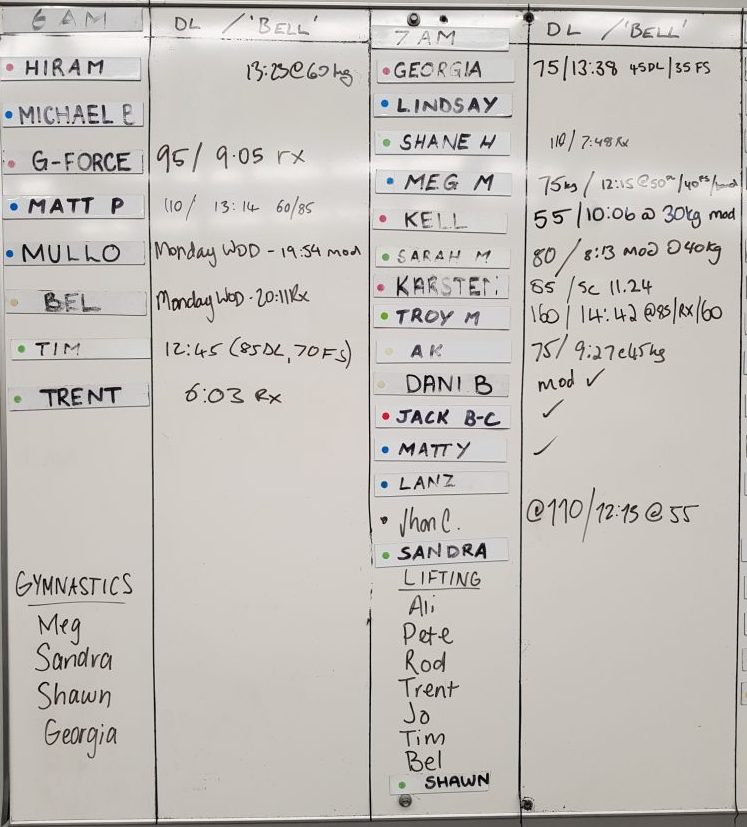 6 AM DL / 'BELL'
HIRAM 13:23@60kg
MICHAEL B
G-FORCE 95/ 9.05 rx
MATT P 110/ 13:14 60/85
MULLO Monday WOD - 19:54 mod
BEL Monday WOD - 20:11 Rx
TIM 12:45 (85DL, 70FS)
TRENT 6:03 Rx
GYMNASTICS
Meg
Sandra
Shawn
Georgia
7 AM DL / 'BELL'
GEORGIA 75/13:38 45DL/35FS
LINDSAY
SHANE H 110/7:48 Rx
MEG M 75kg / 12:15 @50 /40
KELL 55/10:06 @ 30kg mod
SARAH M 80/8:13 mod @40kg
KARSTEN 85/Sc 11.24
TROY M 160/14:42 @85/RX/60
AK 75/9:27@45kg
DANI B mod ✓
JACK B-C ✓
MATTY ✓
LANZ
Jhon C. @110/12:15 @ 55
SANDRA
LIFTING
Ali
Pete
Rod
Trent
Jo
Tim
Bel
SHAWN